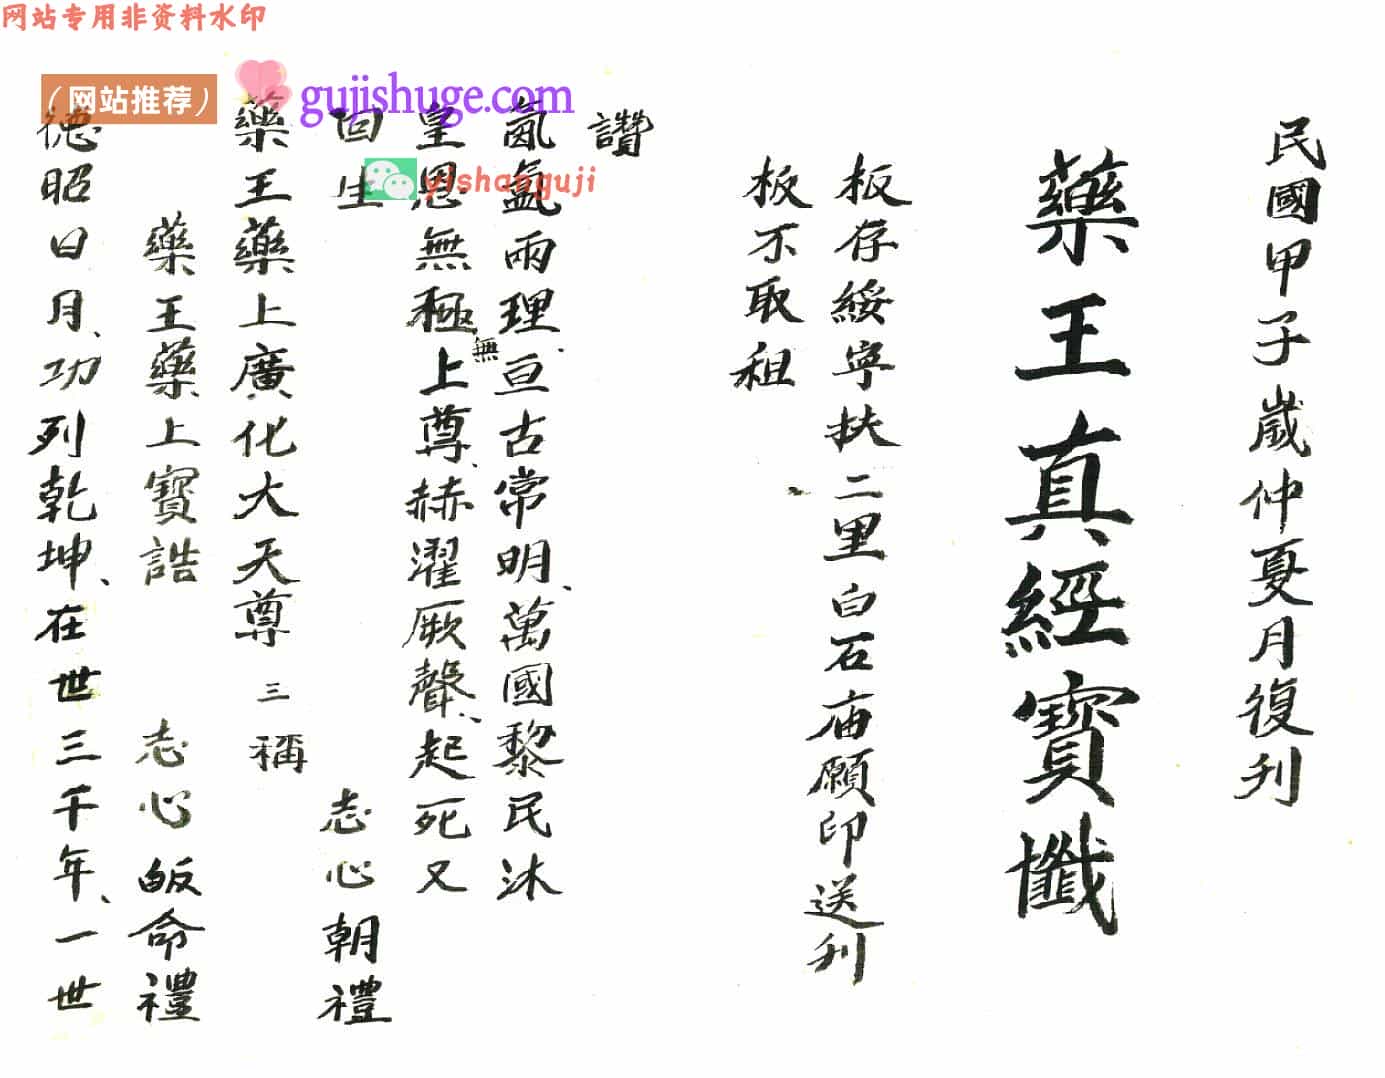 网站专用非资料水印
（网站推荐）
gujishuge.com
yishanguji
民國甲子歲仲夏月復刋
藥王真經寳懺
板存綏寜扶二里白石庙願印送刋
板不取租
讚
氤氳兩理亘古常明、萬國黎民沐
皇恩無極無上尊、赫濯厥聲、起死又
回生　志心朝禮
藥王藥上廣化大天尊 三稱
藥王藥上寳誥　志心皈命禮
德昭日月、功列乾坤、在世三千年、一世